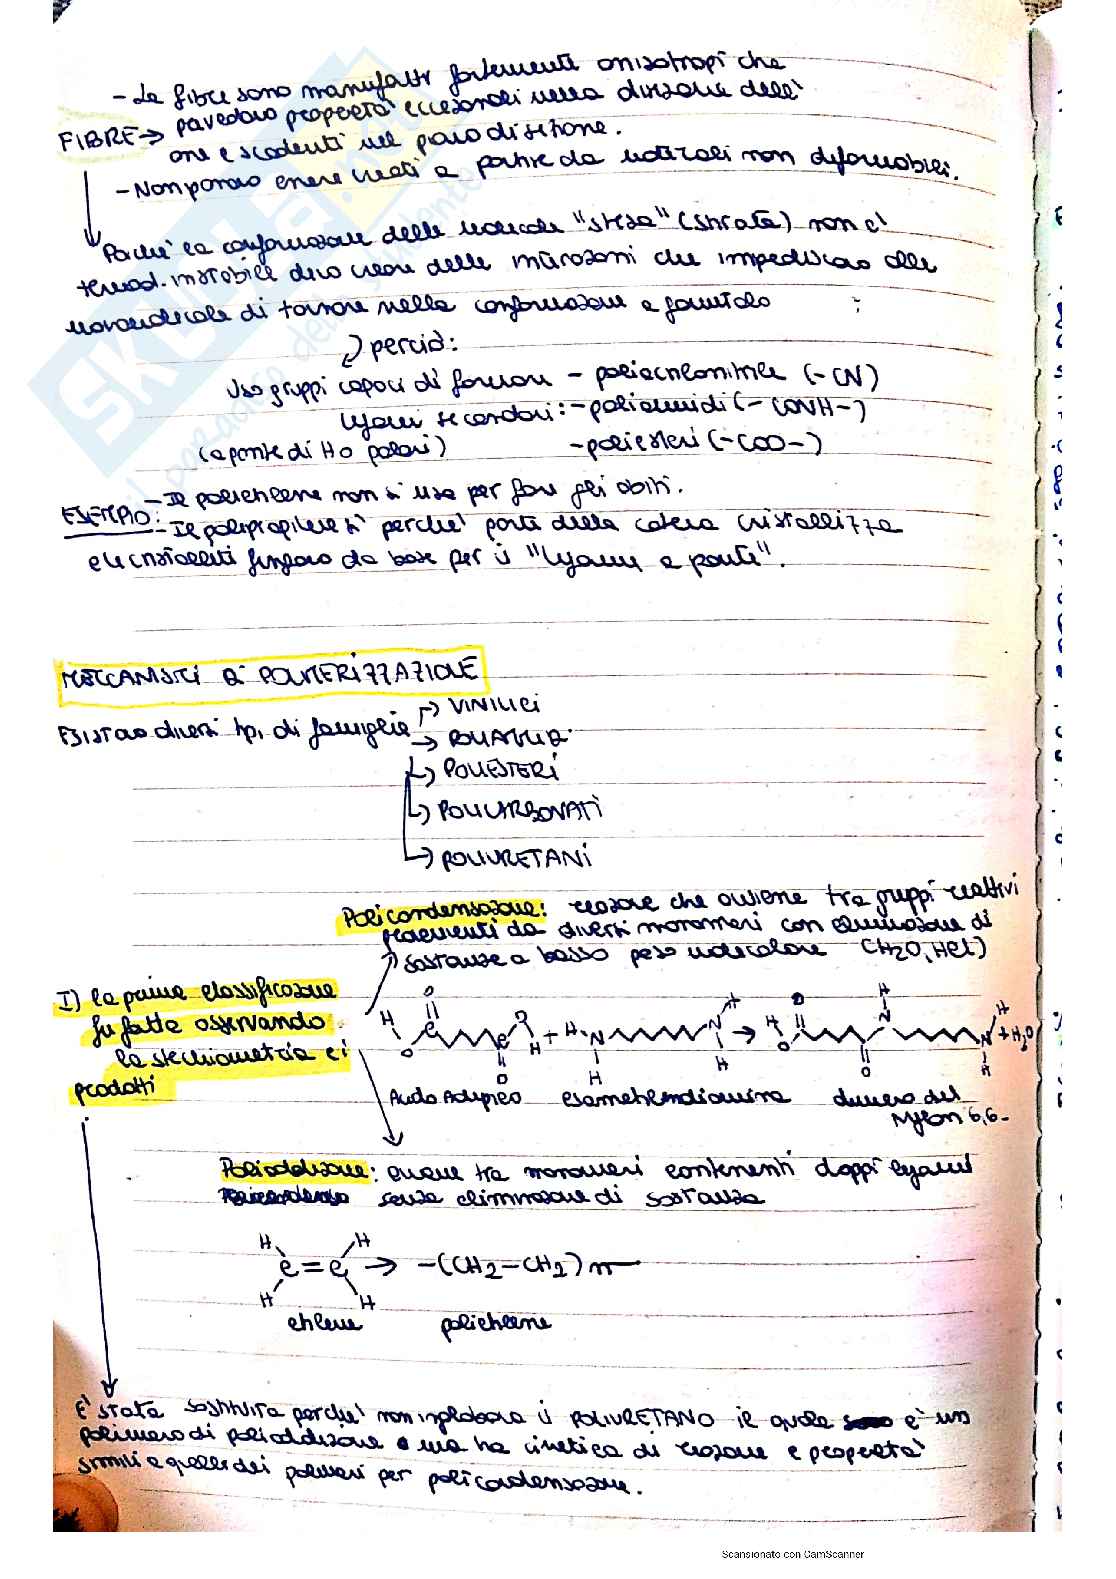 - Le fibre sono manufatti fortemente anisotropi che
FIBRE → possiedono proprietà eccezionali nella direzione dell'
asse e scadenti nel piano di sezione.
- Non possono essere creati a partire da materiali non deformabili.
Poiché la conformazione delle molecole "stesa" (stirata) non è
termod. instabile devo creare delle interazioni che impediscano alla
macromolecola di tornare nella conformazione a gomitolo
perciò:
Uso gruppi capaci di formare - poliacrilonitrile (-CN)
legami secondari: - poliammidi (-CONH-)
(a ponte di H o polari) - poliesteri (-COO-)
ESEMPIO: - Il polietilene non si usa per fare gli abiti.
- Il polipropilene sì perché parte della catena cristallizza
e le cristalliti fungono da base per i "legami a ponte".
MECCANISMI DI POLIMERIZZAZIONE
Esistono diversi tipi di famiglie → VINILICI
→ POLIAMMIDI
→ POLIESTERI
→ POLICARBONATI
→ POLIURETANI
Policondensazione: reazione che avviene tra gruppi reattivi
provenienti da diversi monomeri con eliminazione di
sostanze a basso peso molecolare (H2O, HCl)
I) la prima classificazione
fu fatta osservando
la stechiometria e i
prodotti
H O C O C O O H + H N H N H H → H O C O C O N H N H H + H2O
Acido Adipico esametilendiammina dimero del
Nylon 6,6-
Poliaddizione: avviene tra monomeri contenenti doppi legami
senza eliminazione di sostanze
H H
C = C → -(CH2-CH2)n-
H H
etilene polietilene
È stata sostituita perché non inglobava il POLIURETANO il quale è un
polimero di poliaddizione ma ha cinetica di reazione e proprietà
simili a quelle dei polimeri per policondensazione.
Scansionato con CamScanner
SKUOLA.net
il paradiso dello studente